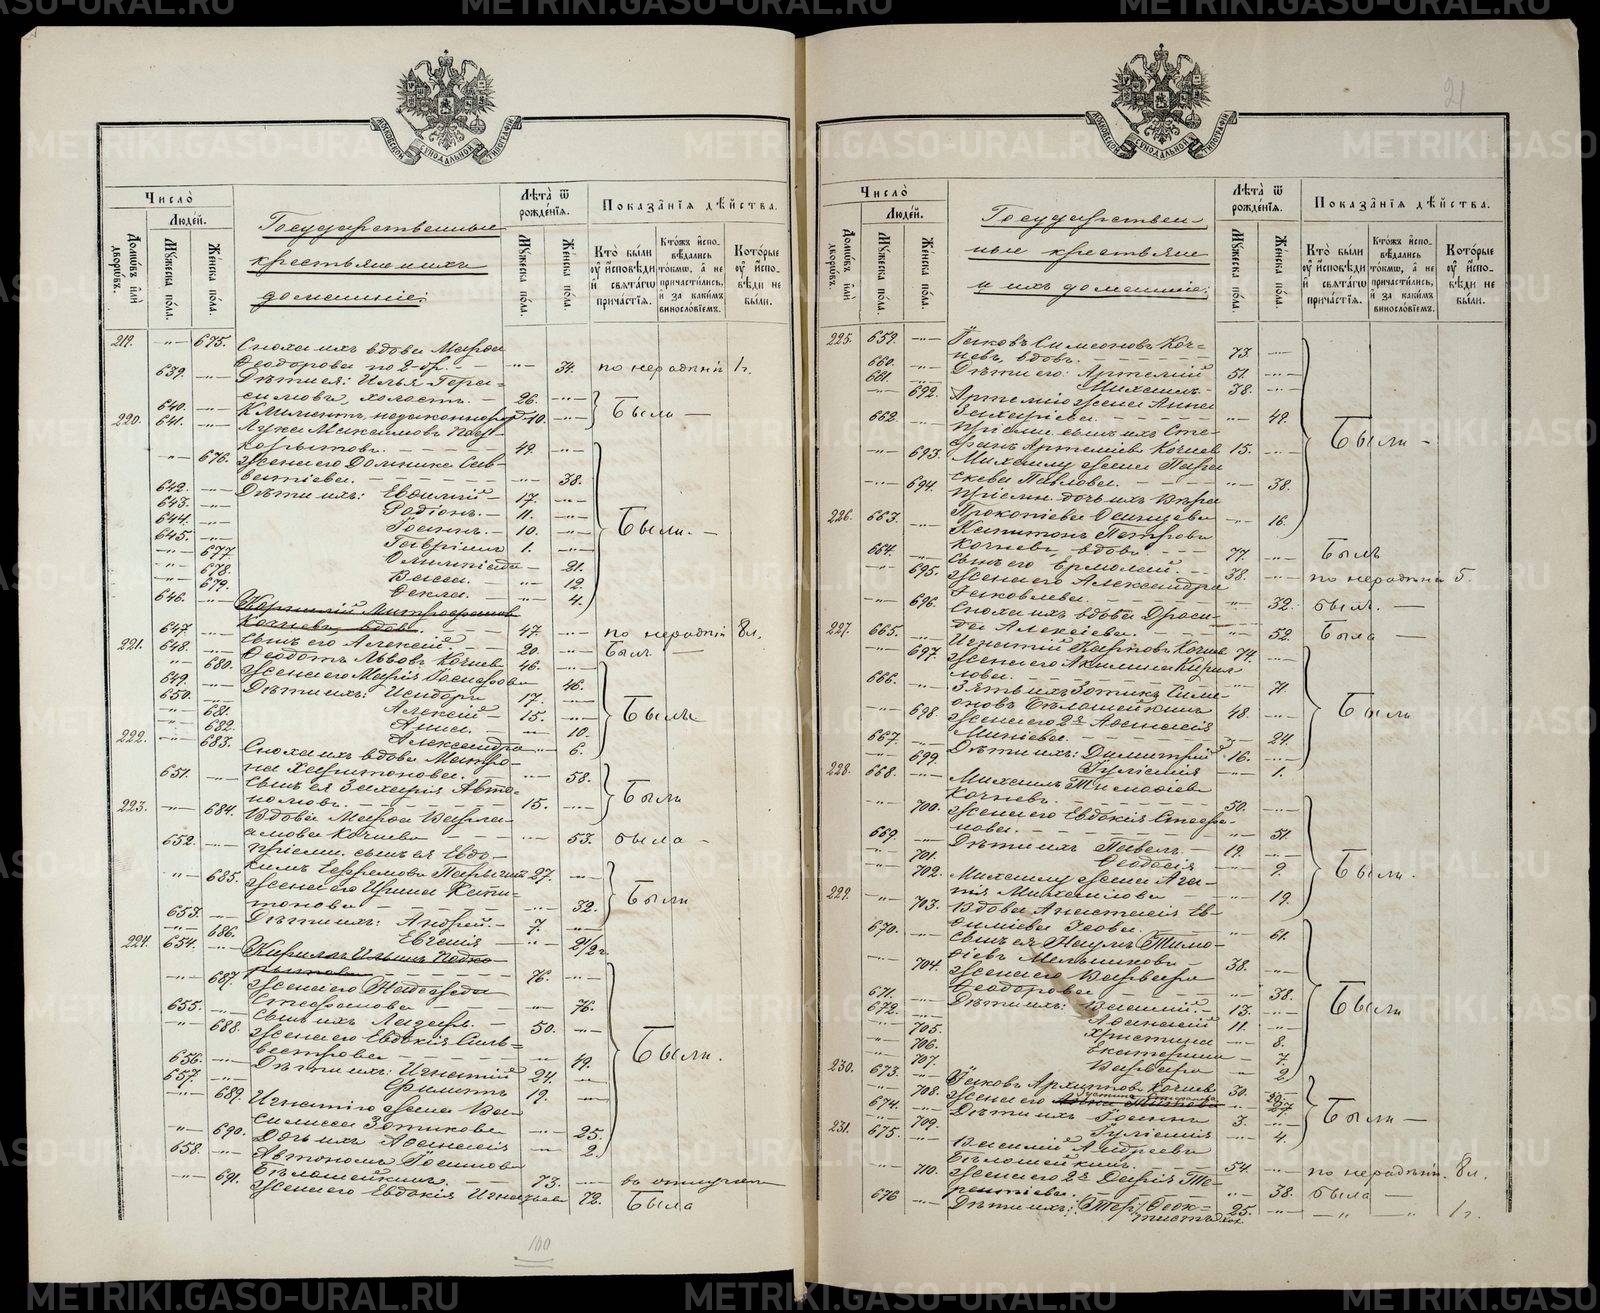 METRIKI.GASO-URAL.RU
21
МОСКОВСКОЙ СѴНОДАЛЬНОЙ ТИПОГРАФІИ
Число̀
Людей.
Домѡвъ или дворѡвъ.
Мꙋжеска пола.
Женска пола.
Государственные
крестьяне и ихъ
домашніе:
Лѣта ѿ рожденїѧ.
Мꙋжеска пола.
Женска пола.
Показанїѧ дѣйства.
Кто были оу исповѣди и свѧтагѡ причастїѧ.
Ктожъ исповѣдались токмѡ, а не причастились, и за какимъ винословїемъ.
Которые оу исповѣди не были.
219. —"— 675. Сноха ихъ вдова Марѳа
Ѳеодорова по 2-бр. —"— 34. по нерадѣнію 1 г.
639. —"— Дѣти ея: Илья Гера-
симовъ, холостъ. 26. —"—
640. —"— Климентъ, незаконнорожд. 10. —"— Были —
220. 641. —"— Лука Максимовъ Под-
корытовъ. 49. —"—
—"— 676. Жена его Домника Сав-
ватіева. —"— 38.
642. —"— Дѣти ихъ: Евфимій 17. —"—
643. —"— Родіонъ. 11. —"—
644. —"— Іоаннъ. 10. —"— Были. —
645. —"— Гавріилъ 1. —"—
—"— 677. Олимпіада —"— 21.
—"— 678. Васса. —"— 12.
—"— 679. Ѳекла. —"— 4.
646. —"— Корнилій Митрофановъ
Кочневъ, вдовъ. 47. —"— по нерадѣнію 8 л.
647. —"— Сынъ его Алексій. 20. —"— Былъ —
221. 648. —"— Ѳеодотъ Львовъ Кочневъ 46. —"—
—"— 680. Жена его Марія Іосифова —"— 46.
649. —"— Дѣти ихъ: Исидоръ 17. —"—
650. —"— Алексій 15. —"— Были
—"— 681. Анна. —"— 10.
—"— 682. Александра —"— 6.
222. —"— 683. Сноха ихъ вдова Матро-
на Харитонова. —"— 58.
651. —"— Сынъ ея Захарія Авто-
номовъ. 15. —"— Были
223. —"— 684. Вдова Марѳа Варла-
амова Кочнева —"— 53. была —
652. —"— Пріемн. сынъ ея Евдо-
кимъ Ефремовъ 27. —"—
—"— 685. Жена его Ирина Капи-
тонова —"— 32. Были
653. —"— Дѣти ихъ: Андрей. 7. —"—
—"— 686. Евгенія —"— 2/2 г.
224. 654. —"— Кириллъ Ильинъ Подко-
рытовъ 76. —"—
—"— 687. Жена его Надежда
Стефанова —"— 76.
655. —"— Сынъ ихъ Лазарь. 50. —"—
—"— 688. Жена его Евдокія Силь-
вестрова —"— 49. Были.
656. —"— Дѣти ихъ: Игнатій 24. —"—
657. —"— Филиппъ 19. —"—
—"— 689. Игнатію жена Ва-
силисса Зотикова —"— 25.
—"— 690. Дочь ихъ Аѳанасія —"— 2.
658. —"— Автономъ Іоанновъ
Бѣлошейкинъ. 73. —"— въ отлучкѣ
—"— 691. Жена его Евдокія Игнатьева 72. Была
100
Число̀
Людей.
Домѡвъ или дворѡвъ.
Мꙋжеска пола.
Женска пола.
Государствен-
ные крестьяне
и ихъ домашніе:
Лѣта ѿ рожденїѧ.
Мꙋжеска пола.
Женска пола.
Показанїѧ дѣйства.
Кто были оу исповѣди и свѧтагѡ причастїѧ.
Ктожъ исповѣдались токмѡ, а не причастились, и за какимъ винословїемъ.
Которые оу исповѣди не были.
225. 659. —"— Іаковъ Симеоновъ Коч-
невъ, вдовъ. 73. —"—
660. —"— Дѣти его: Артемій 51. —"—
661. —"— Михаилъ 38. —"—
—"— 692. Артемію жена Анна
Захаріева. —"— 49.
662. —"— Пріемн. сынъ ихъ Сте-
фанъ Артеміевъ Кочневъ 15. —"— Были —
—"— 693. Михаилу жена Пара-
скева Павлова. —"— 38.
—"— 694. Пріемн. дочь ихъ Вѣра
Прокопіева Осинцева —"— 16.
226. 663. —"— Капитонъ Петровъ
Кочневъ, вдовъ 77. —"— Былъ
664. —"— Сынъ его Ермолай. 38. —"— по нерадѣнію 5.
—"— 695. Жена его Александра
Іаковлева. —"— 32. была. —
—"— 696. Сноха ихъ вдова Дроси-
да Алексіева. —"— 52. Была —
227. 665. —"— Игнатій Карповъ Кочневъ 74. —"—
—"— 697. Жена его Акилина Кирил-
лова. —"— 71.
666. —"— Зять ихъ Зотикъ Симе-
оновъ Бѣлошейкинъ 48. —"— Были
—"— 698. Жена его 2я Аѳанасія
Минѣева. —"— 24.
667. —"— Дѣти ихъ: Димитрій 16. —"—
—"— 699. Іуліанія —"— 1.
228. 668. —"— Михаилъ Тимоѳіевъ
Кочневъ. 50. —"—
—"— 700. Жена его Евдокія Стефа-
нова. —"— 51.
669. —"— Дѣти ихъ Павелъ 19. —"—
—"— 701. Ѳеодосія —"— 9. Были.
—"— 702. Михаилу жена Ага-
пія Михаилова —"— 19.
229. —"— 703. Вдова Анастасія Ев-
ѳиміева —"— 61.
670. —"— Сынъ ея Наумъ Тимо-
ѳіевъ Мельниковъ 38. —"—
—"— 704. Жена его Варвара
Ѳеодорова —"— 38.
671. —"— Дѣти ихъ: Василій. 13. —"— Были
672. —"— Аѳанасій 11. —"—
—"— 705. Христина —"— 8.
—"— 706. Екатерина —"— 7.
—"— 707. Варвара —"— 2.
230. 673. —"— Іаковъ Архиповъ Кочневъ 30. —"—
—"— 708. Жена его —"— 27
674. —"— Дѣти ихъ Іоаннъ 3. —"— Были —
—"— 709. Іуліанія —"— 4.
231. 675. —"— Василій Андреевъ
Бѣлошейкинъ. 54. —"— по нерадѣнію. 8 л.
—"— 710. Жена его 2я Дарія Те-
рентіева. —"— 38. была —
676 —"— Дѣти ихъ: Ѳеок-
тистъ хол. 25. —"— —"— —"— 1 г.